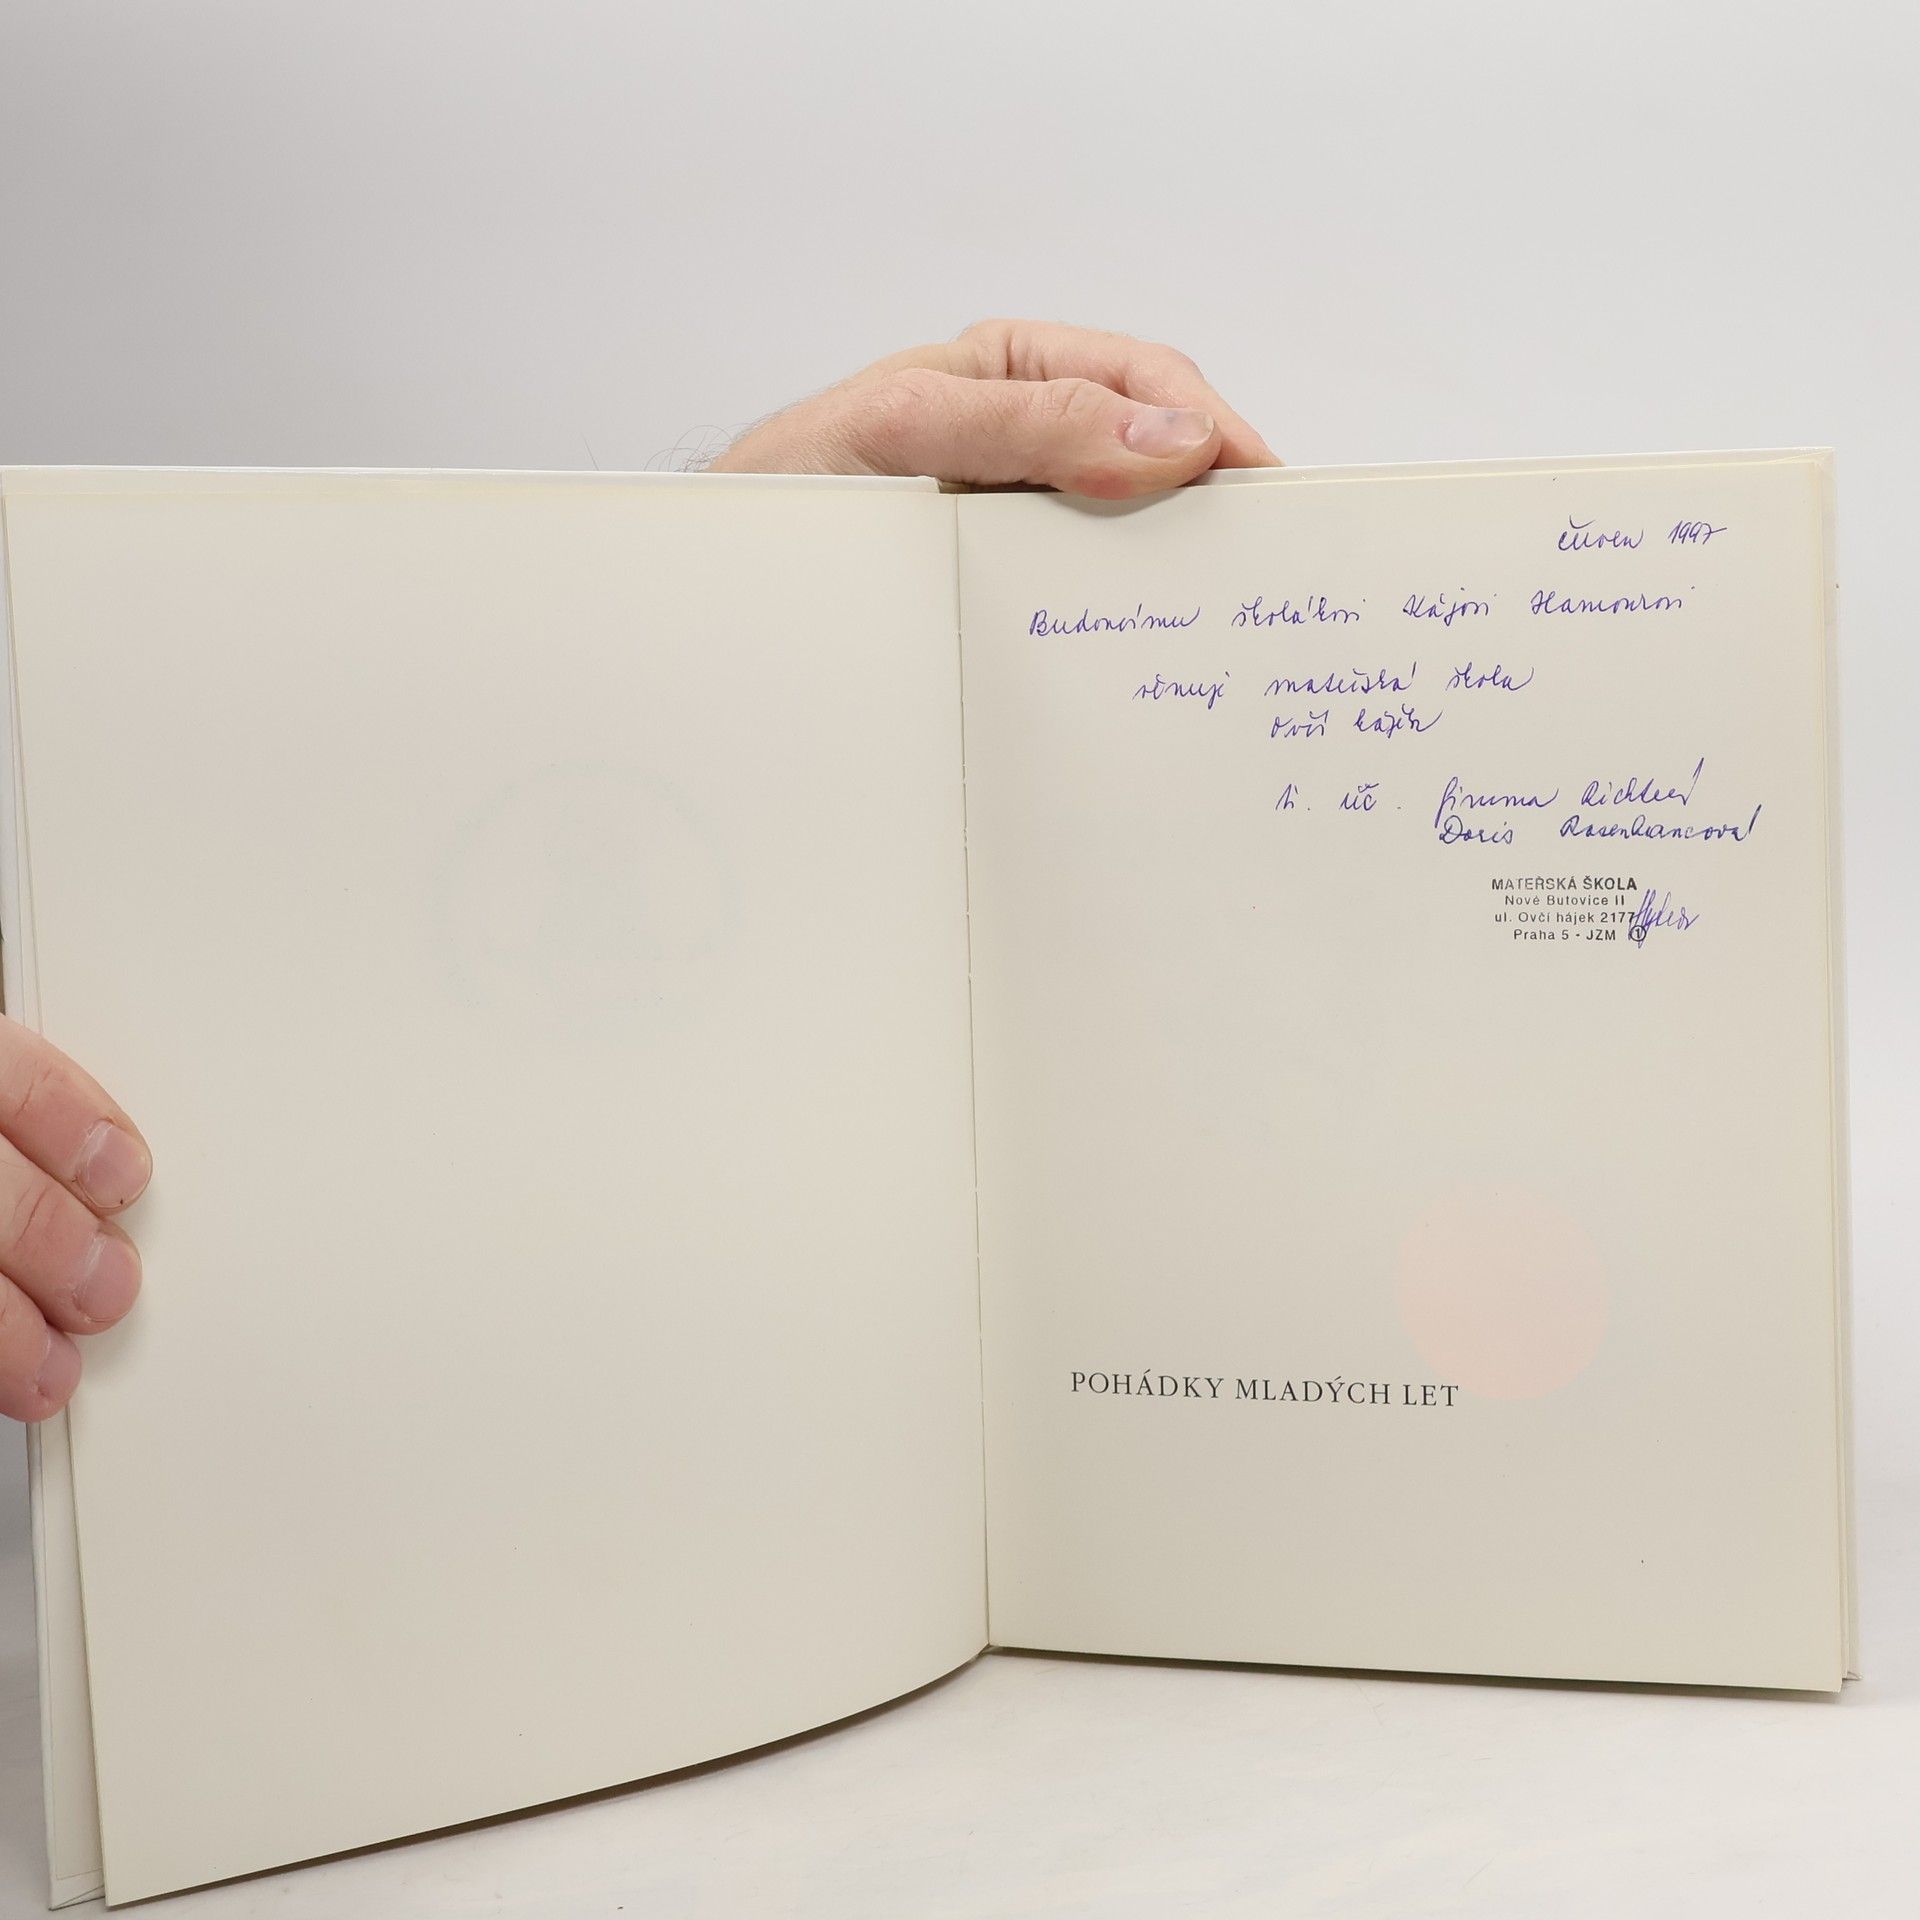 červen 1997
Budoucímu školákovi Kájovi Hamourovi
věnuje mateřská škola
Ovčí hájek
tř. uč. Jiřina Richterová
Doris
MATEŘSKÁ ŠKOLA
Nové Butovice II
ul. Ovčí hájek 2177
Praha 5 - JZM 1
POHÁDKY MLADÝCH LET